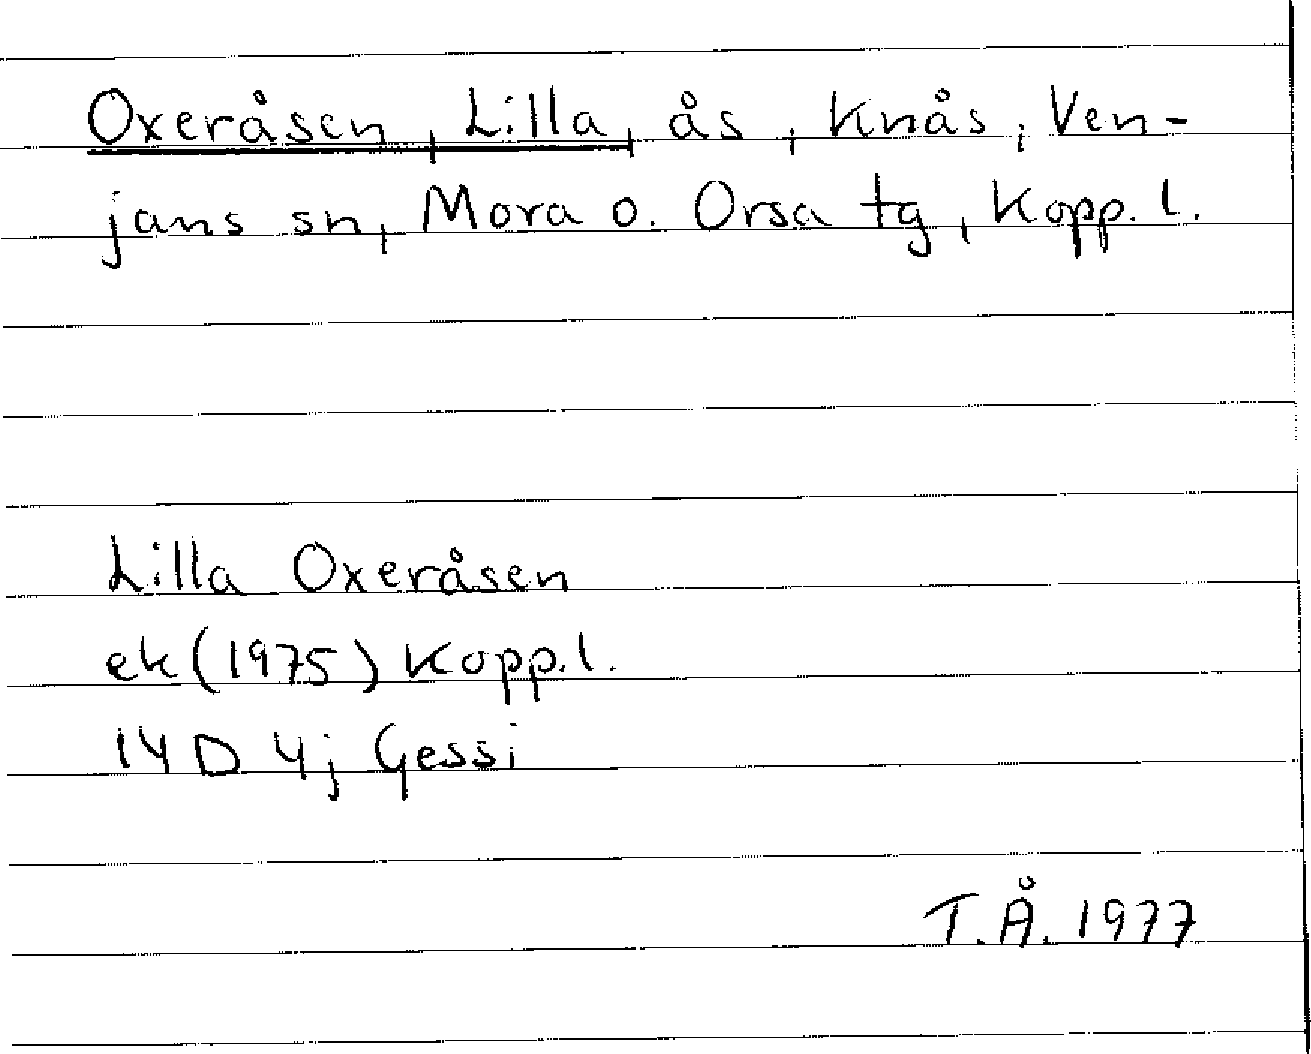 Oxeråsen, Lilla, ås, Knås, Ven-
jans sn, Mora o. Orsa tg, Kopp. l.
Lilla Oxeråsen
ek (1975) Kopp. l.
14 D 4j Gessi
T.Å. 1977